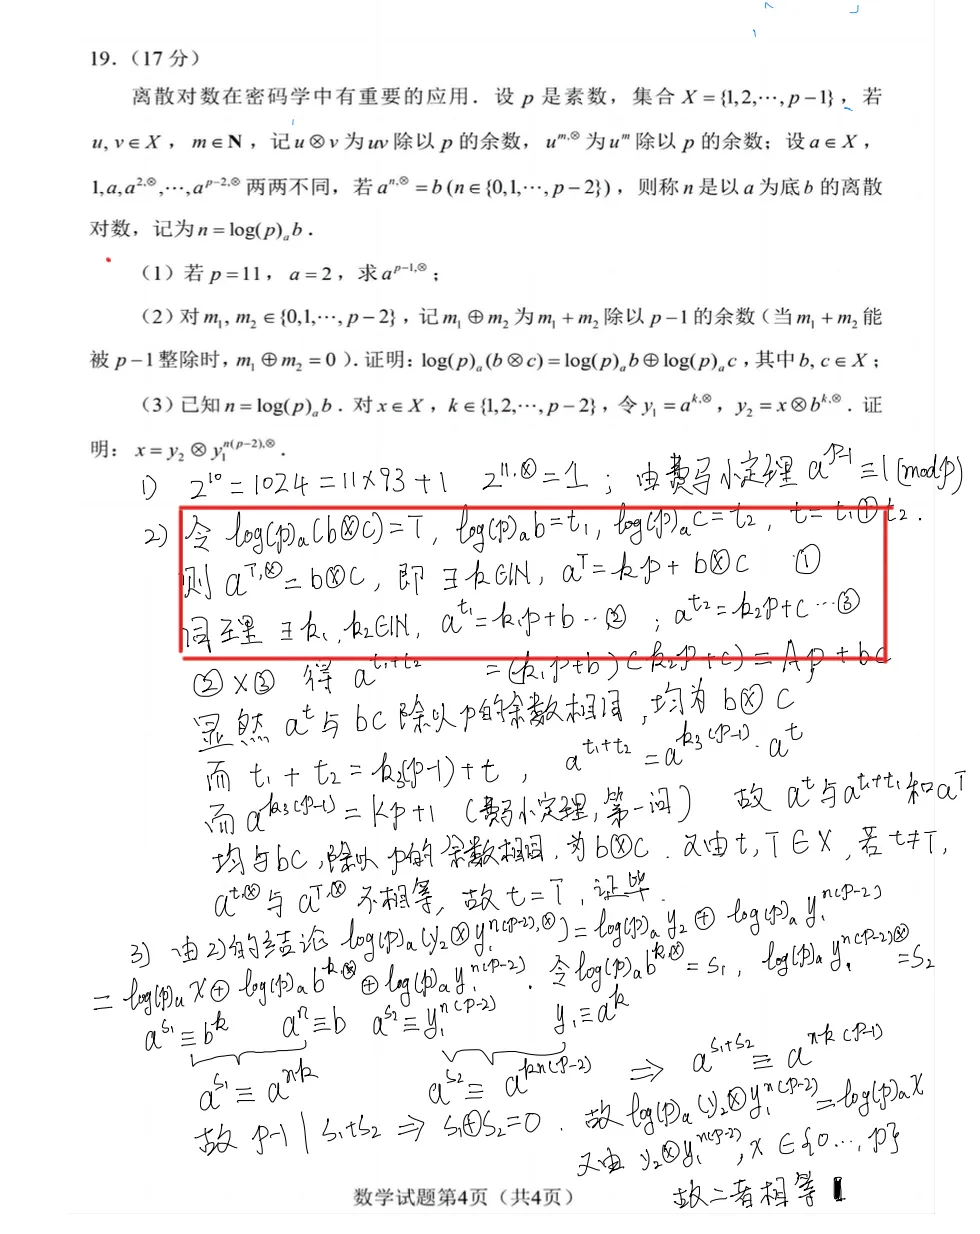 19.（17 分）
离散对数在密码学中有重要的应用．设 p 是素数，集合 X = {1,2,⋯, p−1}，若
u, v∈X ， m∈N ，记 u⊗v 为 uv 除以 p 的余数， u^{m,⊗} 为 u^m 除以 p 的余数；设 a∈X ，
1,a,a^{2,⊗},⋯,a^{p−2,⊗} 两两不同，若 a^{n,⊗} = b (n∈{0,1,⋯, p−2})，则称 n 是以 a 为底 b 的离散
对数，记为 n = log(p)_a b．
（1）若 p=11， a=2，求 a^{p−1,⊗}；
（2）对 m_1, m_2 ∈{0,1,⋯, p−2}，记 m_1 ⊕ m_2 为 m_1 + m_2 除以 p−1 的余数（当 m_1 + m_2 能
被 p−1 整除时，m_1 ⊕ m_2 = 0）．证明：log(p)_a (b⊗c) = log(p)_a b ⊕ log(p)_a c，其中 b, c∈X；
（3）已知 n = log(p)_a b．对 x∈X，k∈{1,2,⋯, p−2}，令 y_1 = a^{k,⊗}，y_2 = x⊗b^{k,⊗}．证
明：x = y_2 ⊗ y_1^{n(p−2),⊗}．
1) 2^{10} = 1024 = 11×93 + 1 2^{11,⊗} = 1 ； 由费马小定理 a^{p-1} ≡ 1 (mod p)
2) 令 log(p)_a (b⊗c) = T, log(p)_a b = t_1, log(p)_a c = t_2, t = t_1⊕t_2.
则 a^{T,⊗} = b⊗c, 即 ∃k∈N, a^T = kp + b⊗c ①
同理 ∃k_1, k_2∈N, a^{t_1} = k_1p+b ⋯② ; a^{t_2} = k_2p+c ⋯③
②×③ 得 a^{t_1+t_2} = (k_1p+b)(k_2p+c) = Ap + bc
显然 a^t 与 bc 除以 p的余数相同, 均为 b⊗c
而 t_1 + t_2 = k_3(p-1)+t, a^{t_1+t_2} = a^{k_3(p-1)}·a^t
而 a^{k_3(p-1)} = Kp+1 (费马小定理,第一问) 故 a^t 与 a^{t_1+t_1} 和 a^T
均与bc,除以 p的余数相同,为 b⊗c. 又由 t, T∈X, 若 t≠T,
a^{t,⊗} 与 a^{T,⊗} 不相等, 故 t=T, 证毕.
3) 由2)的结论 log(p)_a (y_2⊗y_1^{n(p-2),⊗}) = log(p)_a y_2 ⊕ log(p)_a y_1^{n(p-2)}
= log(p)_a x⊕ log(p)_a b^{k,⊗} ⊕ log(p)_a y_1^{n(p-2)}. 令 log(p)_a b^{k,⊗} = s_1, log(p)_a y_1^{n(p-2)⊗} = s_2
a^{s_1}≡b^k a^n≡b a^{s_2}≡y_1^{n(p-2)} y_1≡a^k
a^{s_1}≡a^{nk} a^{s_2}≡a^{kn(p-2)} ⇒ a^{s_1+s_2} ≡ a^{nk(p-1)}
故 p-1 | s_1+s_2 ⇒ s_1⊕s_2=0. 故 log(p)_a (y_2⊗y_1^{n(p-2)} = log(p)_a x
又由 y_2⊗y_1^{n(p-2)}, x∈{0⋯, p}
故二者相等
数学试题第4页（共4页）